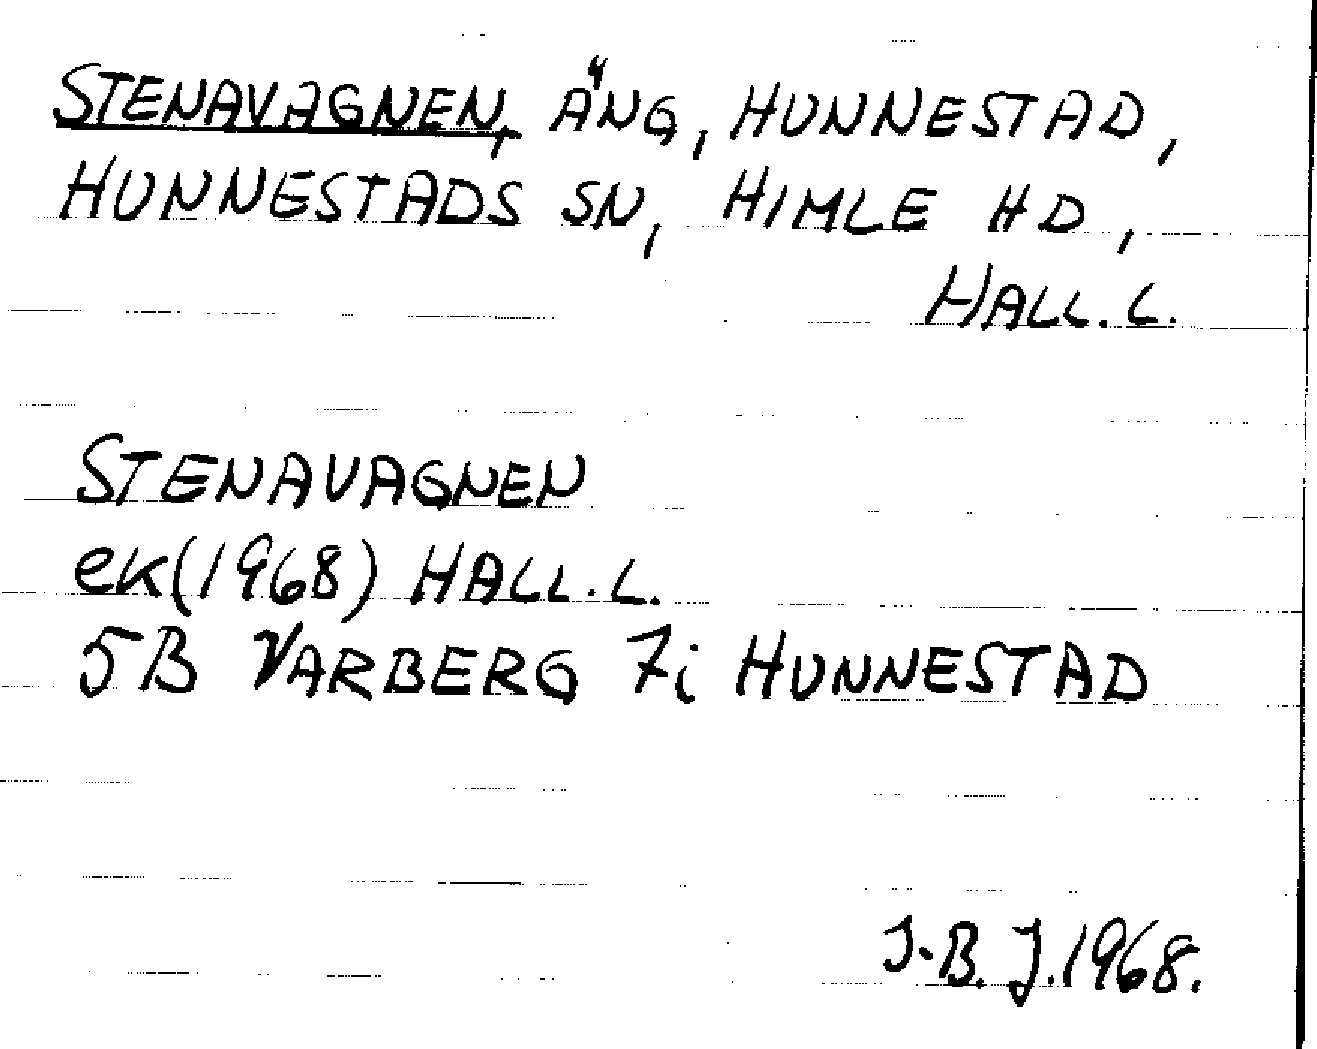 STENAVAGNEN, ÄNG, HUNNESTAD,
HUNNESTADS SN, HIMLE HD,
HALL. L.
STENAVAGNEN
ek (1968) HALL. L.
5B VARBERG 7i HUNNESTAD
J-B. J. 1968.